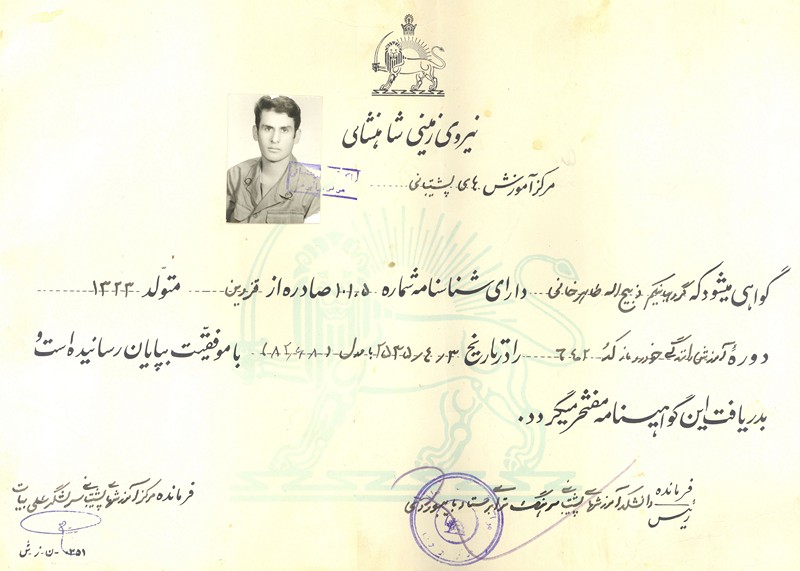 نیروی زمینی شاهنشاهی
مرکز آموزش های پشتیبانی
گواهی میشود که گروهبان یکم ذبیح اله طاهرخانی دارای شناسنامه شماره ۱۰۱۰۵ صادره از قزوین متولد ۱۳۲۳
دورهٔ آموزش رانندگی خودرو باز کد ۶۴۲ را در تاریخ ۲۵۳۵/۴/۳ با موفقیت بپایان رسانیده است و
بدریافت این گواهینامه مفتخر میگردد.
فرمانده مرکز آموزشهای پشتیبانی سرلشگر علی بیات
فرمانده
رئیس دانشکده آموزشهای پشتیبانی سرهنگ
۳۵۱-ن-ز-ش